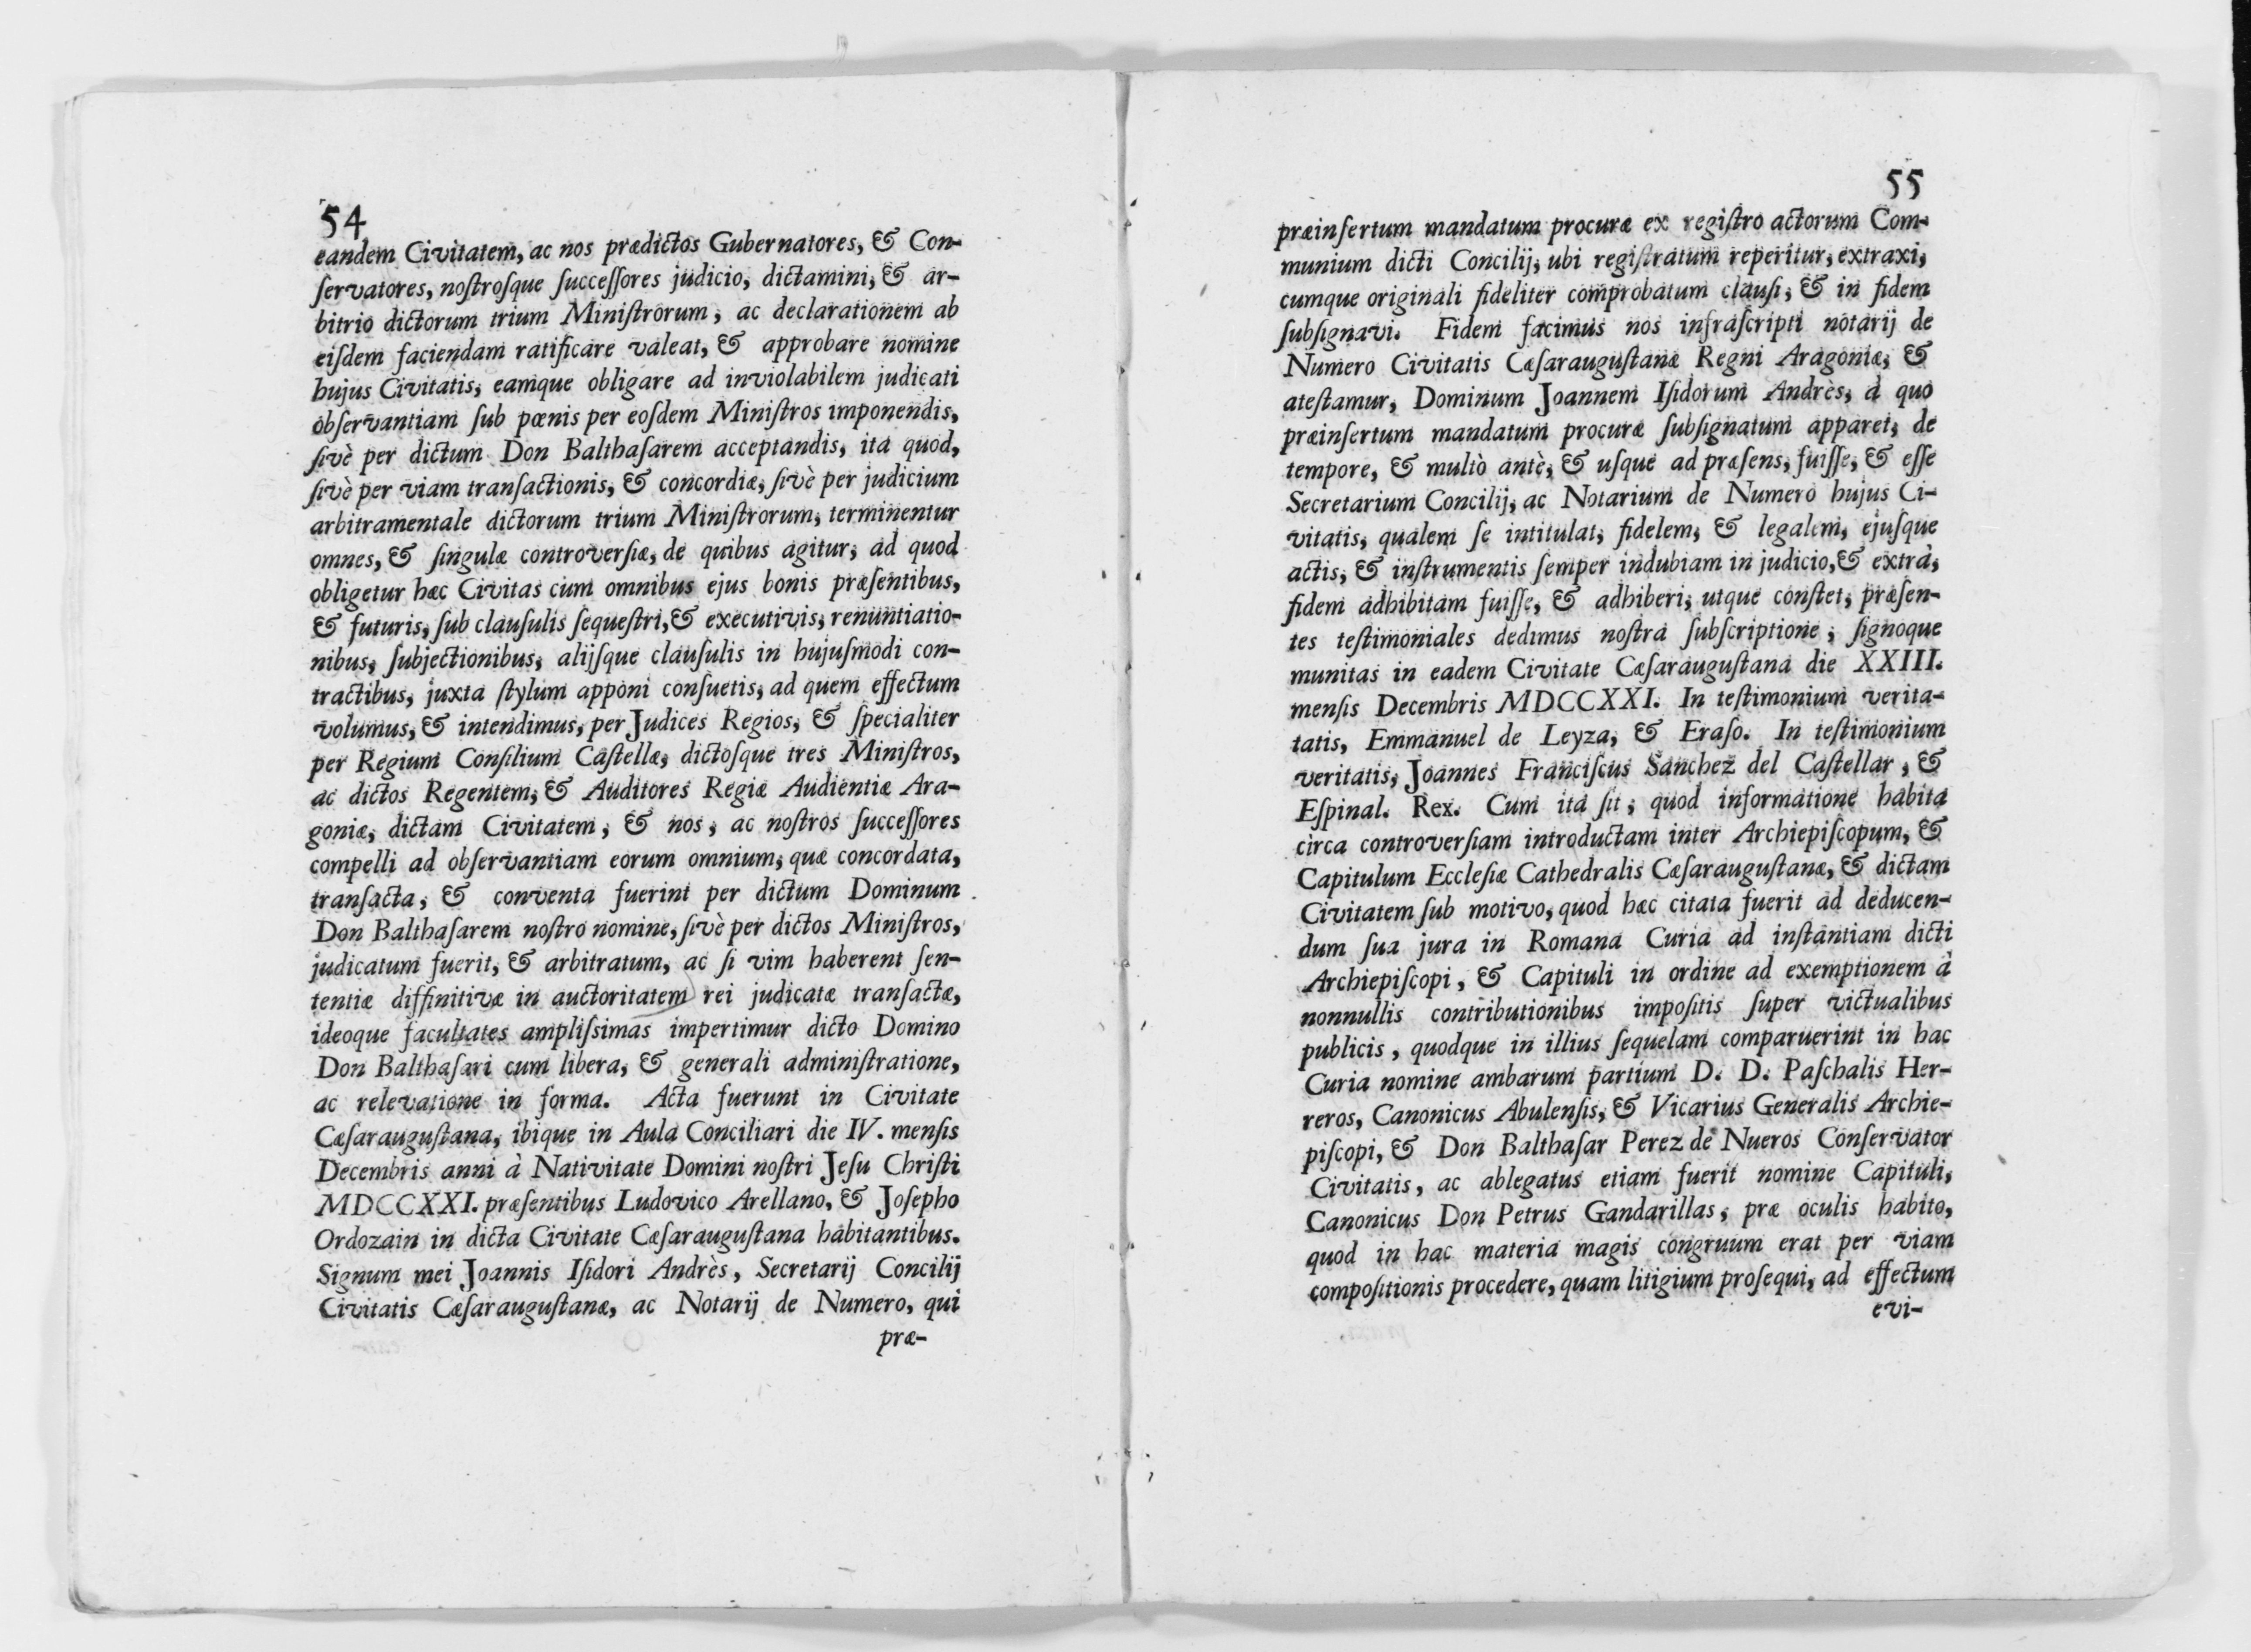 54
eandem Civitatem, ac nos prædictos Gubernatores, & Con-
ſervatores, noſtroſque ſucceſſores judicio, dictamini, & ar-
bitrio dictorum trium Miniſtrorum, ac declarationem ab
eiſdem faciendam ratificare valeat, & approbare nomine
hujus Civitatis, eamque obligare ad inviolabilem judicati
obſervantiam ſub pœnis per eoſdem Miniſtros imponendis,
ſivè per dictum Don Balthaſarem acceptandis, ita quod,
ſivè per viam tranſactionis, & concordiæ, ſivè per judicium
arbitramentale dictorum trium Miniſtrorum, terminentur
omnes, & ſingulæ controverſiæ, de quibus agitur, ad quod
obligetur hæc Civitas cum omnibus ejus bonis præſentibus,
& futuris, ſub clauſulis ſequeſtri, & executivis, renuntiatio-
nibus, ſubjectionibus, alijſque clauſulis in hujuſmodi con-
tractibus, juxta ſtylum apponi conſuetis, ad quem effectum
volumus, & intendimus, per Judices Regios, & ſpecialiter
per Regium Conſilium Caſtellæ, dictoſque tres Miniſtros,
ac dictos Regentem, & Auditores Regiæ Audientiæ Ara-
goniæ, dictam Civitatem, & nos, ac noſtros ſucceſſores
compelli ad obſervantiam eorum omnium, quæ concordata,
tranſacta, & conventa fuerint per dictum Dominum
Don Balthaſarem noſtro nomine, ſivè per dictos Miniſtros,
judicatum fuerit, & arbitratum, ac ſi vim haberent ſen-
tentiæ diffinitivæ in auctoritatem rei judicatæ tranſactæ,
ideoque facultates ampliſsimas impertimur dicto Domino
Don Balthaſari cum libera, & generali adminiſtratione,
ac relevatione in forma. Acta fuerunt in Civitate
Cæſarauguſtana, ibique in Aula Conciliari die IV. menſis
Decembris anni à Nativitate Domini noſtri Jeſu Chriſti
MDCCXXI. præſentibus Ludovico Arellano, & Joſepho
Ordozain in dicta Civitate Cæſarauguſtana habitantibus.
Signum mei Joannis Iſidori Andrès, Secretarij Concilij
Civitatis Cæſarauguſtanæ, ac Notarij de Numero, qui
præ-
55
præinſertum mandatum procuræ ex regiſtro actorum Com-
munium dicti Concilij, ubi regiſtratum reperitur, extraxi,
cumque originali fideliter comprobatum clauſi, & in fidem
ſubſignavi. Fidem facimus nos infraſcripti notarij de
Numero Civitatis Cæſarauguſtanæ Regni Aragoniæ, &
ateſtamur, Dominum Joannem Iſidorum Andrès, à quo
præinſertum mandatum procuræ ſubſignatum apparet, de
tempore, & multò antè, & uſque ad præſens, fuiſſe, & eſſe
Secretarium Concilij, ac Notarium de Numero hujus Ci-
vitatis, qualem ſe intitulat, fidelem, & legalem, ejuſque
actis, & inſtrumentis ſemper indubiam in judicio, & extrà,
fidem adhibitam fuiſſe, & adhiberi, utque conſtet, præſen-
tes teſtimoniales dedimus noſtrà ſubſcriptione, ſignoque
munitas in eadem Civitate Cæſarauguſtana die XXIII.
menſis Decembris MDCCXXI. In teſtimonium verita-
tatis, Emmanuel de Leyza, & Eraſo. In teſtimonium
veritatis, Joannes Franciſcus Sanchez del Caſtellar, &
Eſpinal. Rex. Cum ita ſit, quod informatione habita
cìrca controverſiam introductam inter Archiepiſcopum, &
Capitulum Eccleſiæ Cathedralis Cæſarauguſtanæ, & dictam
Civitatem ſub motivo, quod hæc citata fuerit ad deducen-
dum ſua jura in Romana Curia ad inſtantiam dicti
Archiepiſcopi, & Capituli in ordine ad exemptionem à
nonnullis contributionibus impoſitis ſuper victualibus
publicis, quodque in illius ſequelam comparuerint in hac
Curia nomine ambarum partium D. D. Paſchalis Her-
reros, Canonicus Abulenſis, & Vicarius Generalis Archie-
piſcopi, & Don Balthaſar Perez de Nueros Conſervator
Civitatis, ac ablegatus etiam fuerit nomine Capituli,
Canonicus Don Petrus Gandarillas, præ oculis habito,
quod in hac materia magis congruum erat per viam
compoſitionis procedere, quam litigium proſequi, ad effectum
evi-